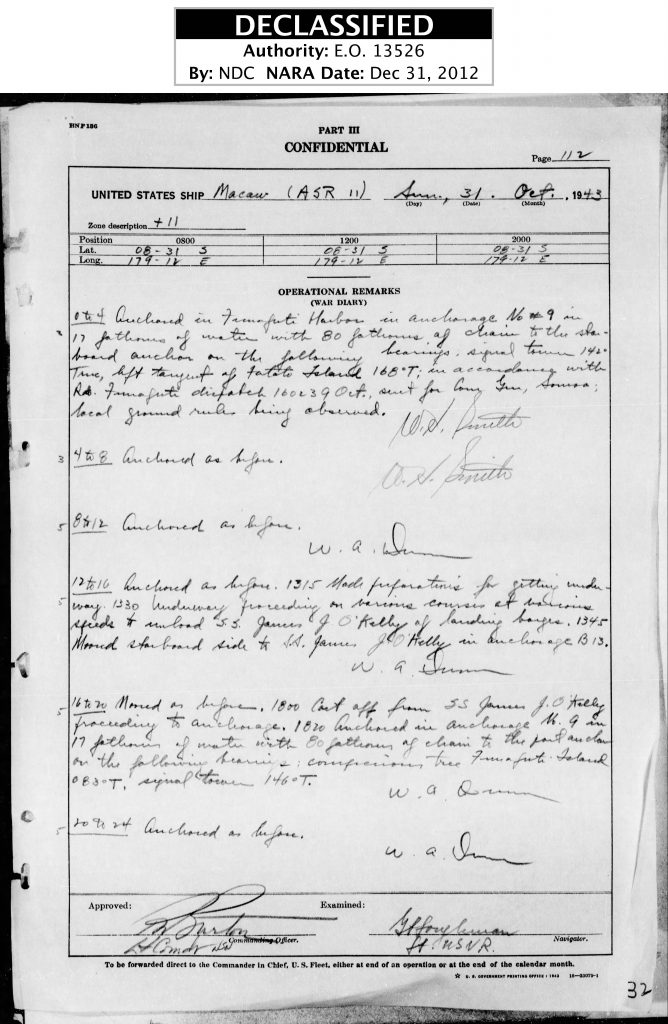 DECLASSIFIED
Authority: E.O. 13526
By: NDC NARA Date: Dec 31, 2012
PART III
CONFIDENTIAL
Page 112
UNITED STATES SHIP Macaw (ASR 11) Sun., 31. Oct., 1943
(Day) (Date) (Month)
Zone description +11
Position 0800 1200 2000
Lat. 08-31 S 08-31 S 08-31 S
Long. 179-12 E 179-12 E 179-12 E
OPERATIONAL REMARKS
(WAR DIARY)
0 to 4 Anchored in Funafuti Harbor in anchorage No 9 in
17 fathoms of water with 80 fathoms of chain to the star-
board anchor on the following bearings: signal tower 142°
True, left tangent of Fatato Island 168°T; in accordance with
Funafuti dispatch 160239 Oct., sent for Com Gen, Samoa;
local ground rules being observed.
W.H. Smith
4 to 8 Anchored as before.
W.H. Smith
8 to 12 Anchored as before.
W. A. Dunn
12 to 16 Anchored as before. 1315 Made preparations for getting under-
way. 1330 Underway proceeding on various courses at various
speeds to unload S.S. James J O'Kelly of landing barges. 1345
Moored starboard side to S.S. James J. O'Kelly in anchorage B 13.
W. A. Dunn
16 to 20 Moored as before. 1800 Cast off from SS James J. O'Kelly
proceeding to anchorage. 1820 Anchored in anchorage N. 9 in
17 fathoms of water with 80 fathoms of chain to the port anchor
on the following bearings: conspicuous tree Funafuti Island
083°T, signal tower 146°T.
W. A. Dunn
20 to 24 Anchored as before.
W. A. Dunn
Approved: Examined:
Burton
Lt Comdr USN Commanding Officer.
Lt. USNR. Navigator.
To be forwarded direct to the Commander in Chief, U. S. Fleet, either at end of an operation or at the end of the calendar month.
☆ U. S. GOVERNMENT PRINTING OFFICE : 1943
32